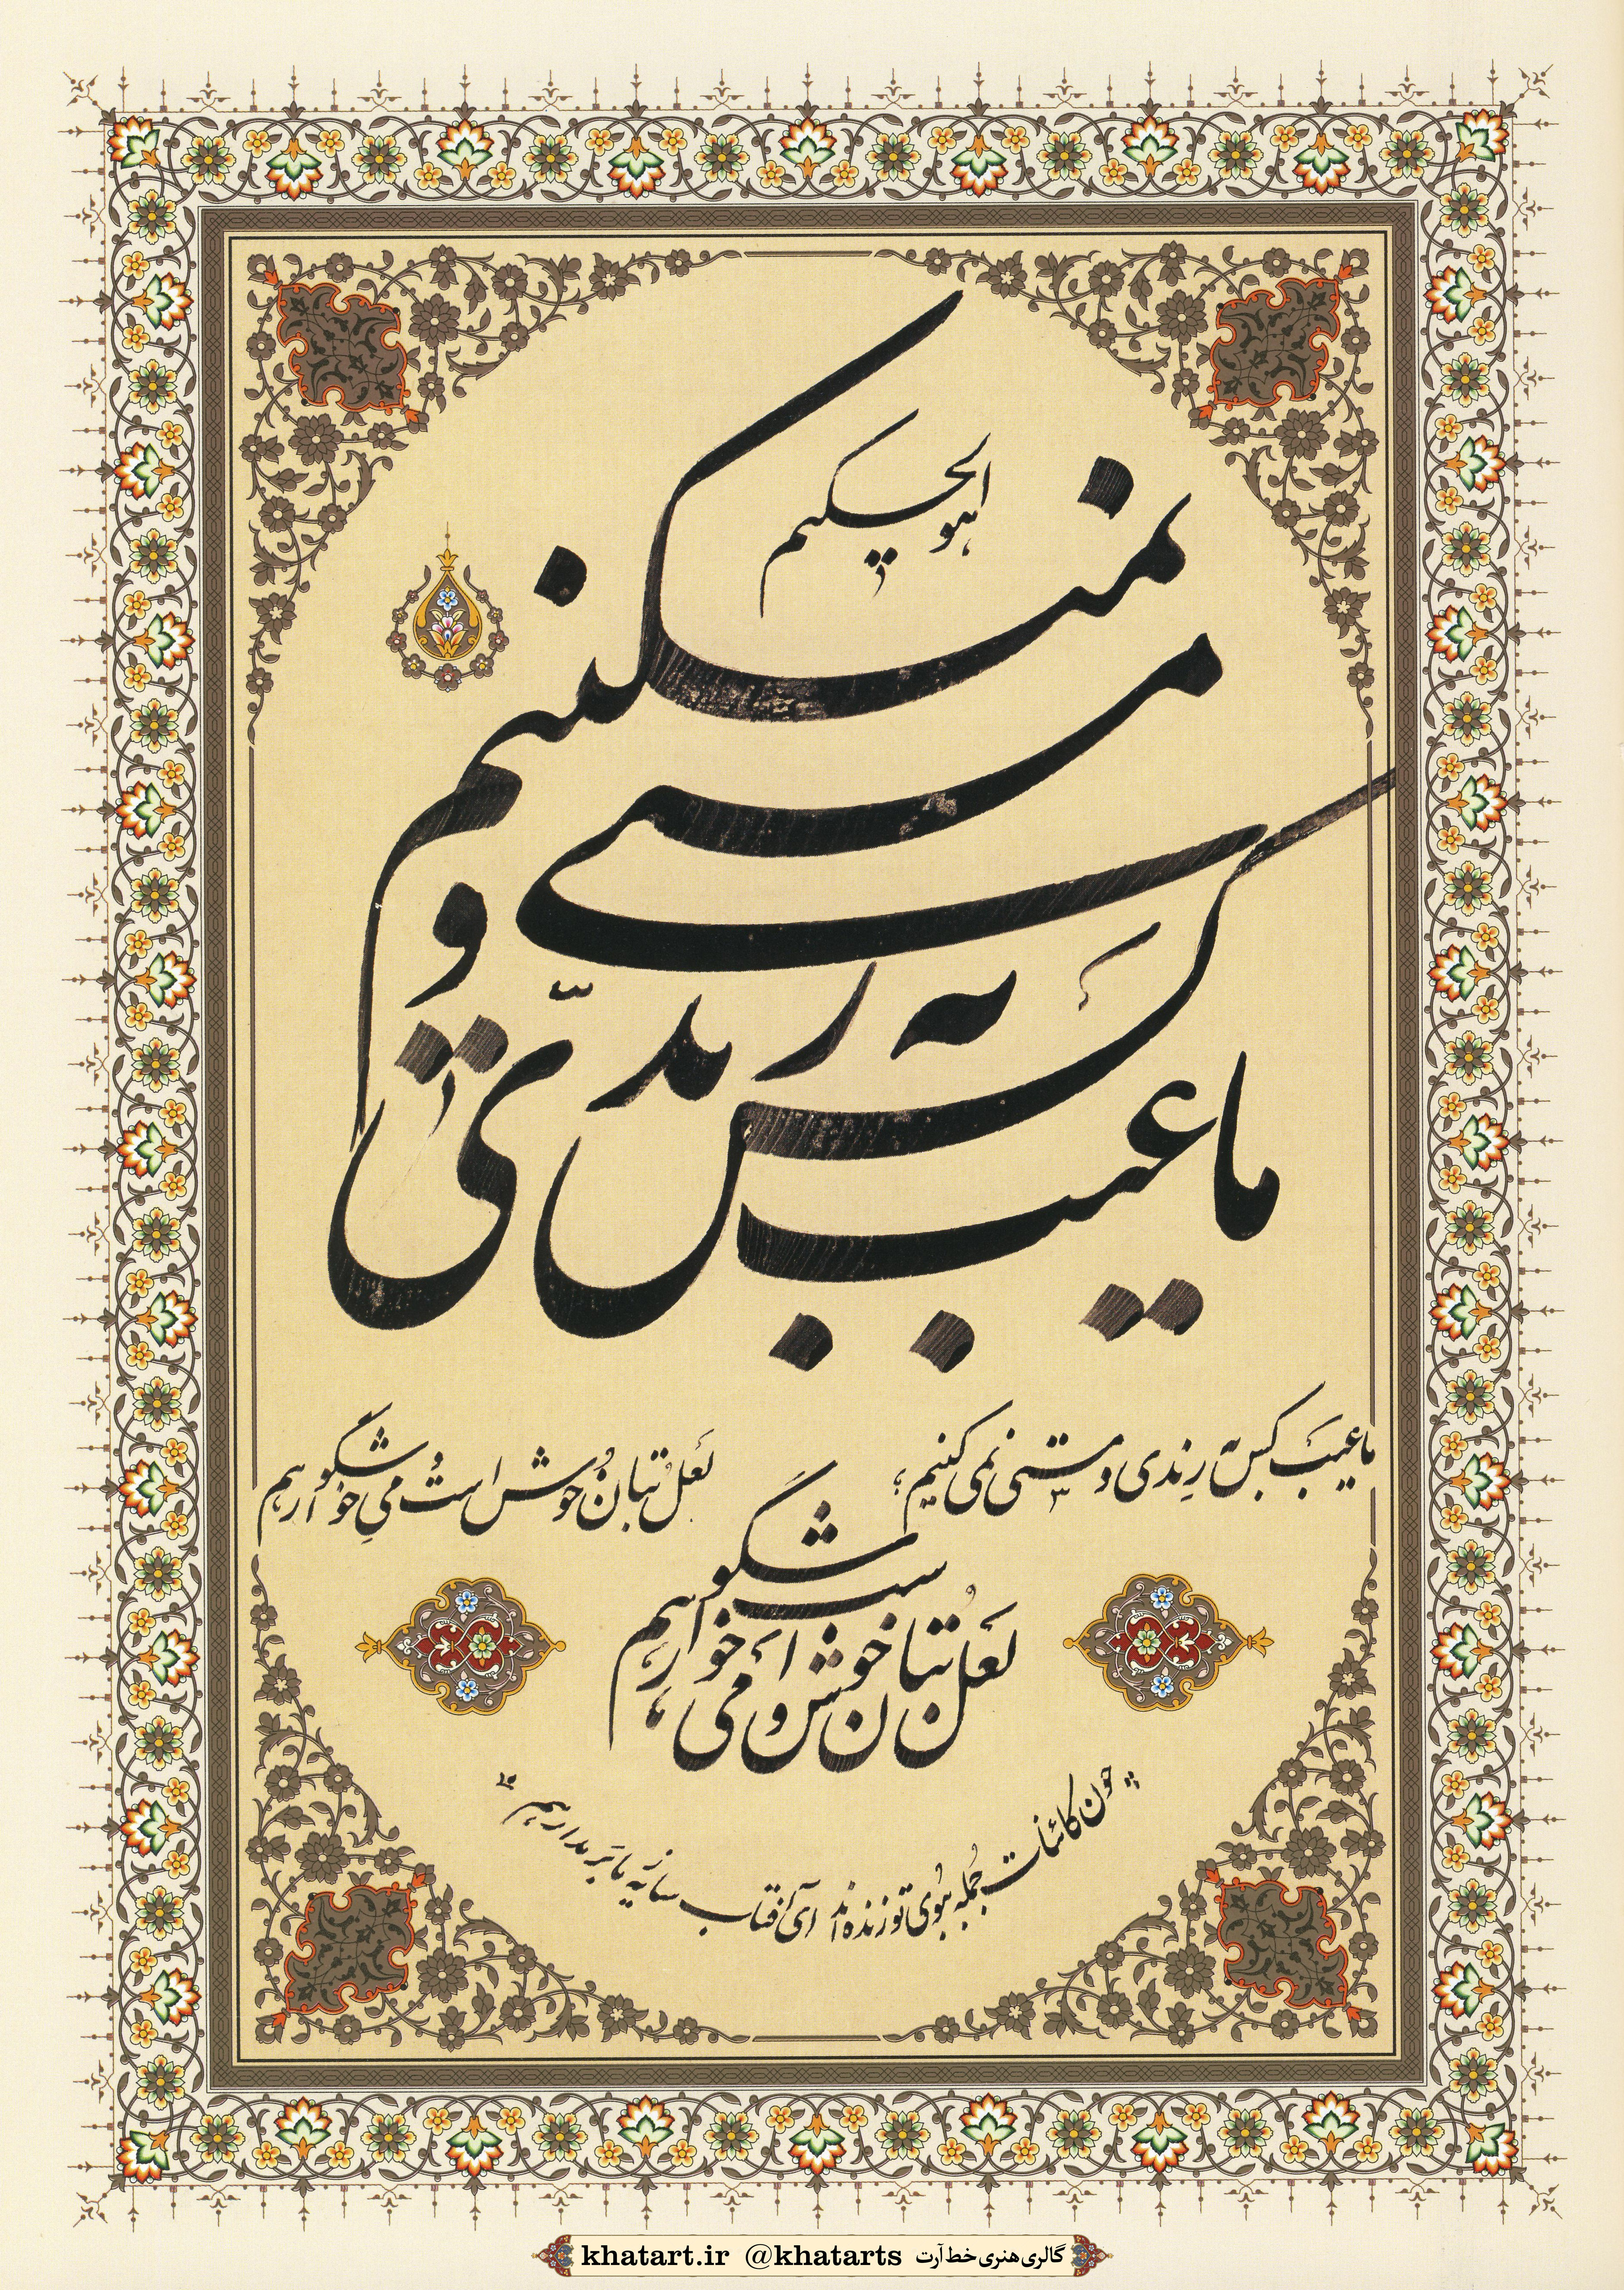 هو الحکیم
ما عیب کس به رندی و مستی نمیکنیم
ما عیب کس به رندی و مستی نمی کنیم
لعل بتان خوش است و می خوشگوار هم
لعل بتان خوش است و می خوشگوار هم
چون کائنات جمله ببوی تو زنده اند ای آفتاب سایه ز ما بر مدار هم
khatart.ir @khatarts گالری هنری خط آرت